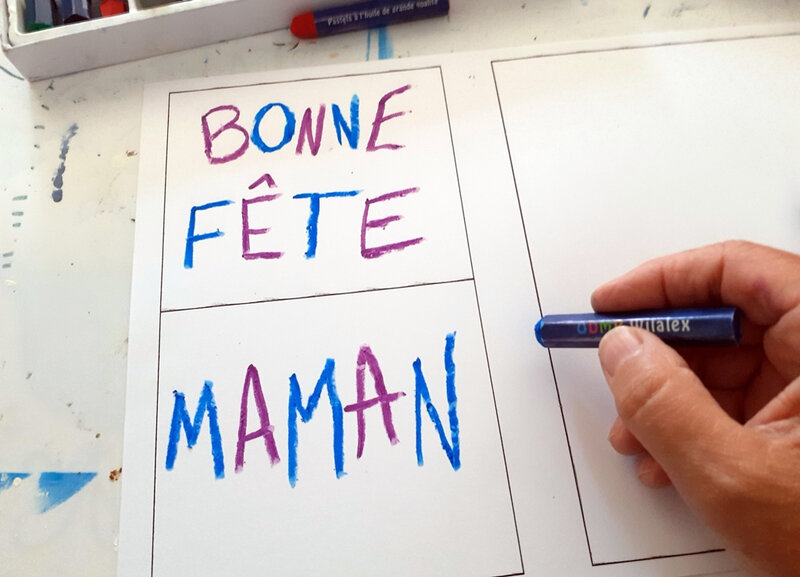 Pastels à l'huile de grande qualité
BONNE
FÊTE
MAMAN